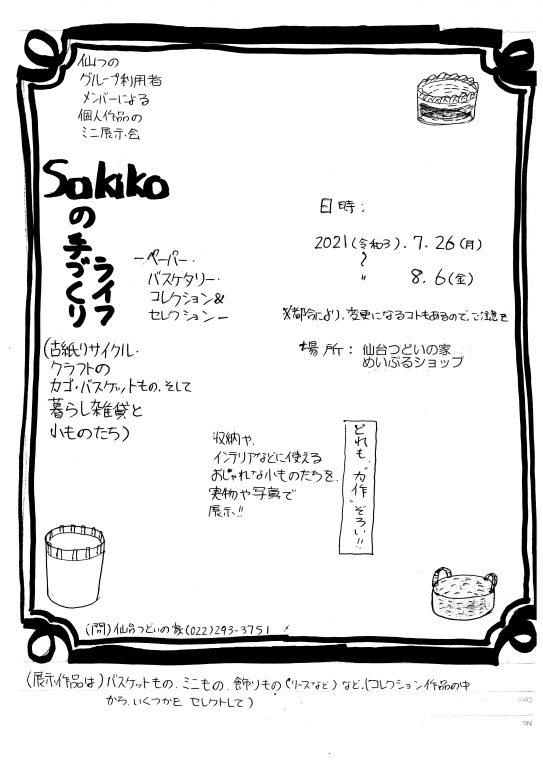 仙つの
グループ利用者
メンバーによる
個人作品の
ミニ展示会
Sakiko
の手づくり
ライフ
ーペーパー・
バスケタリー・
コレクション&
セレクションー
日時;
2021(令和3).7.26(月)
〜
〃 8.6(金)
※都合により、変更になるコトもあるので、ご注意を
場所: 仙台つどいの家
めいぷるショップ
(古紙リサイクル・
クラフトの
カゴ・バスケットもの、そして
暮らし雑貨と
小ものたち)
収納や、
インテリアなどに使える
おしゃれな小ものたちを、
実物や写真で
展示!!
どれも、"力作"ぞろい!!
(問)仙台つどいの家(022)293-3751
(展示作品は)バスケットもの、ミニもの、飾りもの(リースなど)など、(コレクション作品の中
から、いくつかを セレクトして)
Date
No.